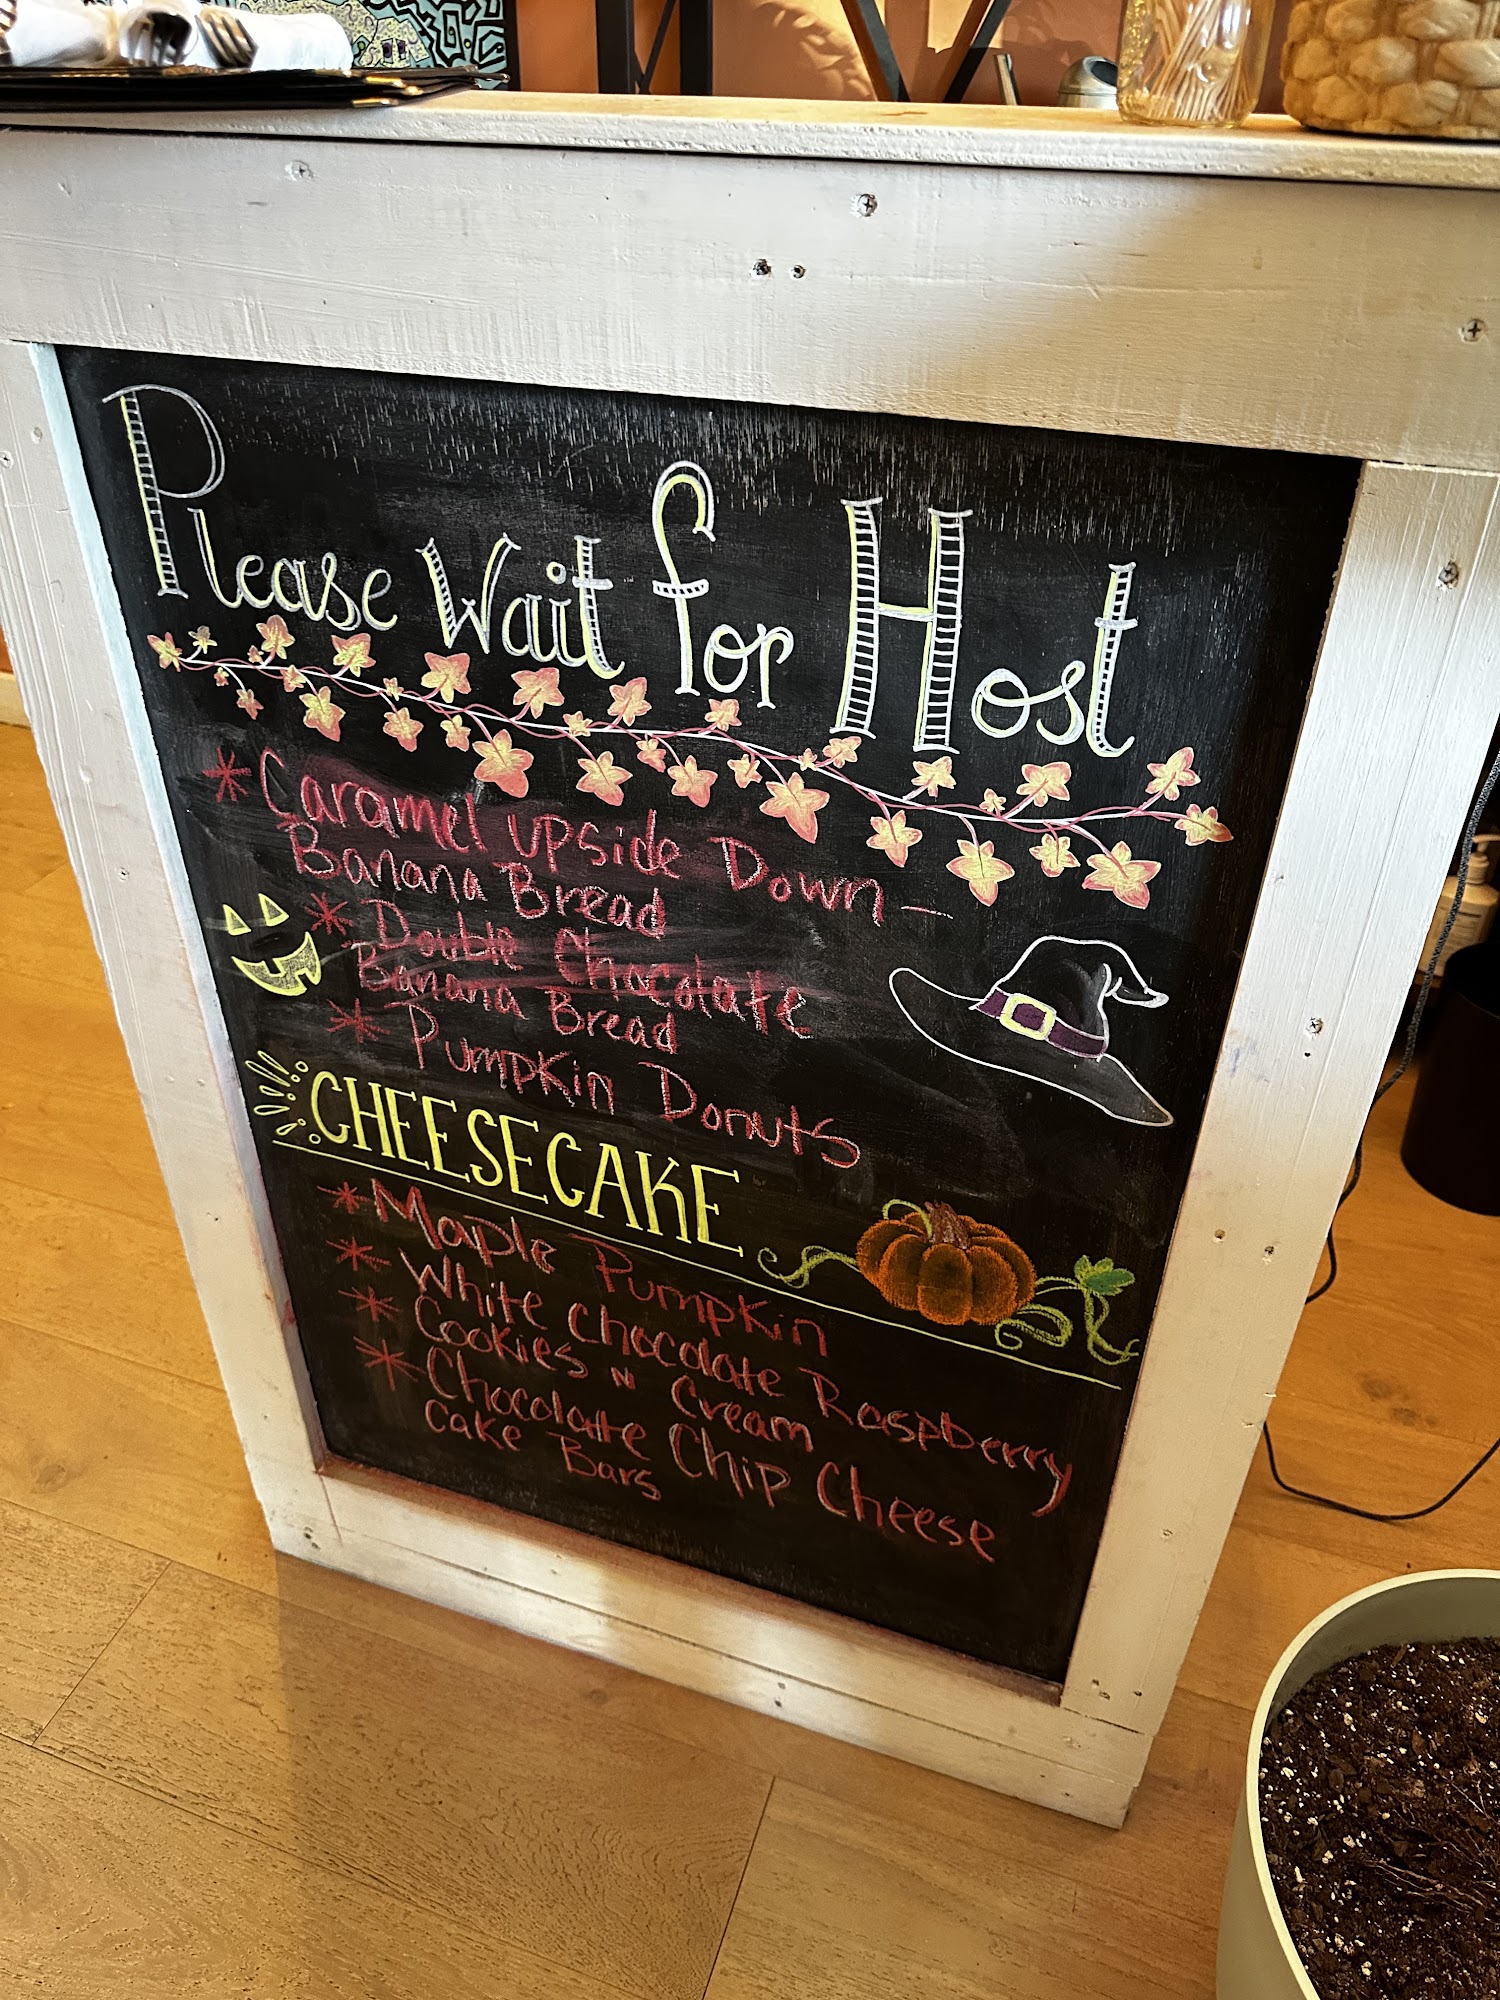 Please Wait for Host
* Caramel upside Down -
Banana Bread
* Double Chocolate
Banana Bread
* Pumpkin Donuts
CHEESECAKE
* Maple Pumpkin
* White Chocolate Raspberry
* Cookies N Cream
* Chocolate Chip Cheese
cake Bars